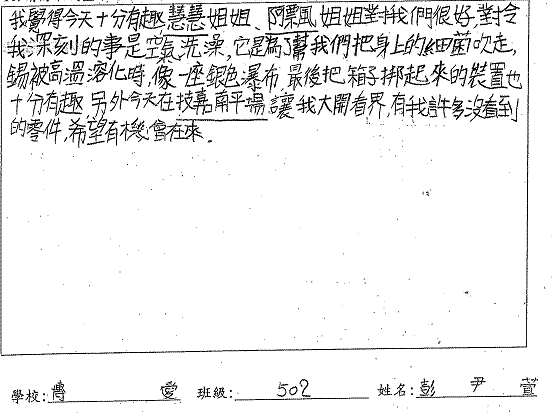 我覺得今天十分有趣,慧慧姐姐、阿票風姐姐對我們很好,對令
我深刻的事是空氣洗澡,它是為了幫我們把身上的細菌吹走,
錫被高溫溶化時,像一座銀色瀑布,最後把箱子綁起來的裝置也
十分有趣,另外今天在技嘉南平場讓我大開眷界,有我許多沒看到
的零件,希望有機會在來.
學校:博愛 班級:502 姓名:彭尹萱